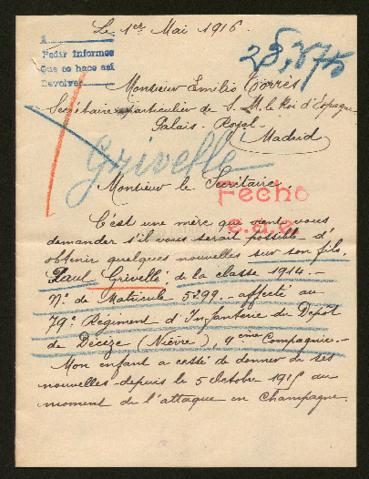 Le 1er Mai 1916.
A
Pedir informes
Que se hace así
Devolver
25,875
Monsieur Emilio Torrès
Secrétaire particulier de S. M. le Roi d'Espagne
Palais-Royal
Madrid
Grivelle
Monsieur le Secrétaire,
Fecho
C'est une mère qui vient vous
demander s'il vous serait possible d'
obtenir quelques nouvelles sur son fils.
Paul Grivelle, de la classe 1914.-
No de Matricule 5299 affecté au
79e Régiment d'Infanterie du Dépôt
de Decize (Nièvre), 4ème Compagnie.-
Mon enfant a cessé de donner de ses
nouvelles depuis le 5 Octobre 1915 au
moment de l'attaque en Champagne